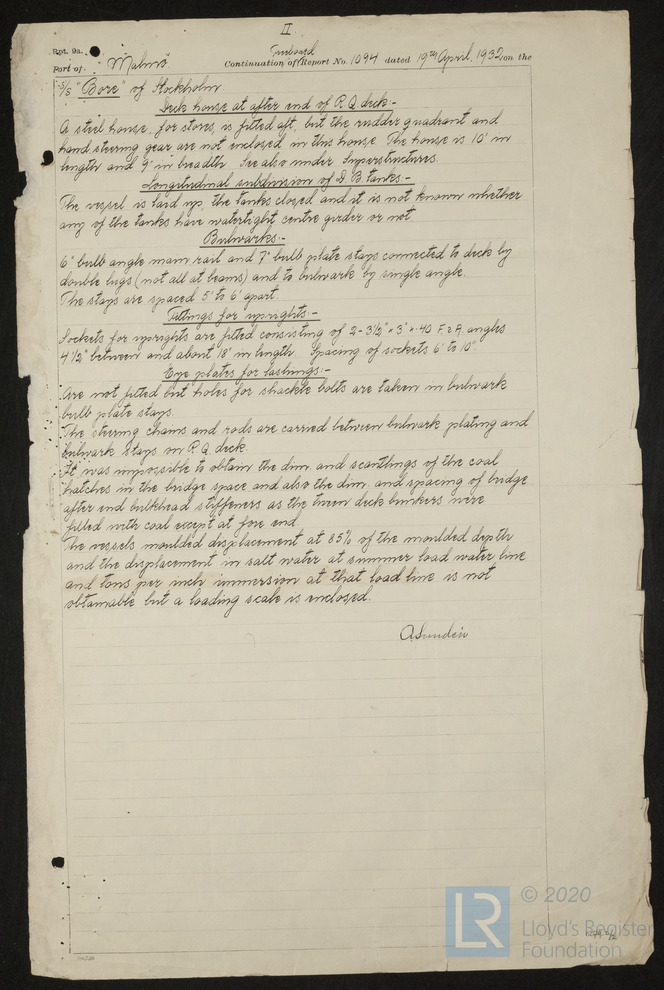 II
Rpt. 9a.
Port of Malmö
Freeboard
Continuation of Report No. 1094 dated 19th April, 1932 on the
S/S "Bore" of Stockholm
Deck house at after end of R.Q. deck:-
A steel house, for stores, is fitted aft, but the rudder quadrant and
hand steering gear are not enclosed in this house. The house is 10' in
length and 9' in breadth. See also under Superstructures.
Longitudinal subdivision of D.B. tanks:-
The vessel is laid up, the tanks closed and it is not known whether
any of the tanks have watertight centre girder or not
Bulwarks:-
6" bulb angle main rail and 7" bulb plate stays connected to deck by
double lugs (not all at beams) and to bulwark by single angle.
The stays are spaced 5' to 6' apart
Fittings for uprights:-
Sockets for uprights are fitted consisting of 2 - 3½" × 3" × .40 F. & A. angles
4½" between and about 18" in length. Spacing of sockets 6' to 10'
Eye plates for lashings:-
Are not fitted but holes for shackle bolts are taken in bulwark
bulb plate stays.
The steering chains and rods are carried between bulwark plating and
bulwark stays on R.Q. deck.
It was impossible to obtain the dim. and scantlings of the coal
hatches in the bridge space and also the dim. and spacing of bridge
after end bulkhead stiffeners as the tween deck bunkers were
filled with coal except at fore end.
The vessels moulded displacement at 85% of the moulded depth
and the displacement in salt water at summer load water line
and tons per inch immersion at that load line is not
obtainable but a loading scale is enclosed.
A Sundén
LR
© 2020
Lloyd's Register
Foundation